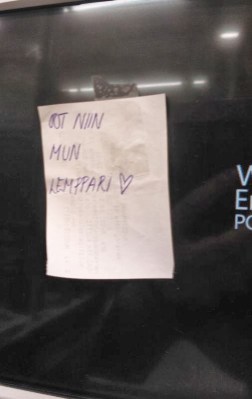 OOT NIIN
MUN
LEMPPARI ♡
PO